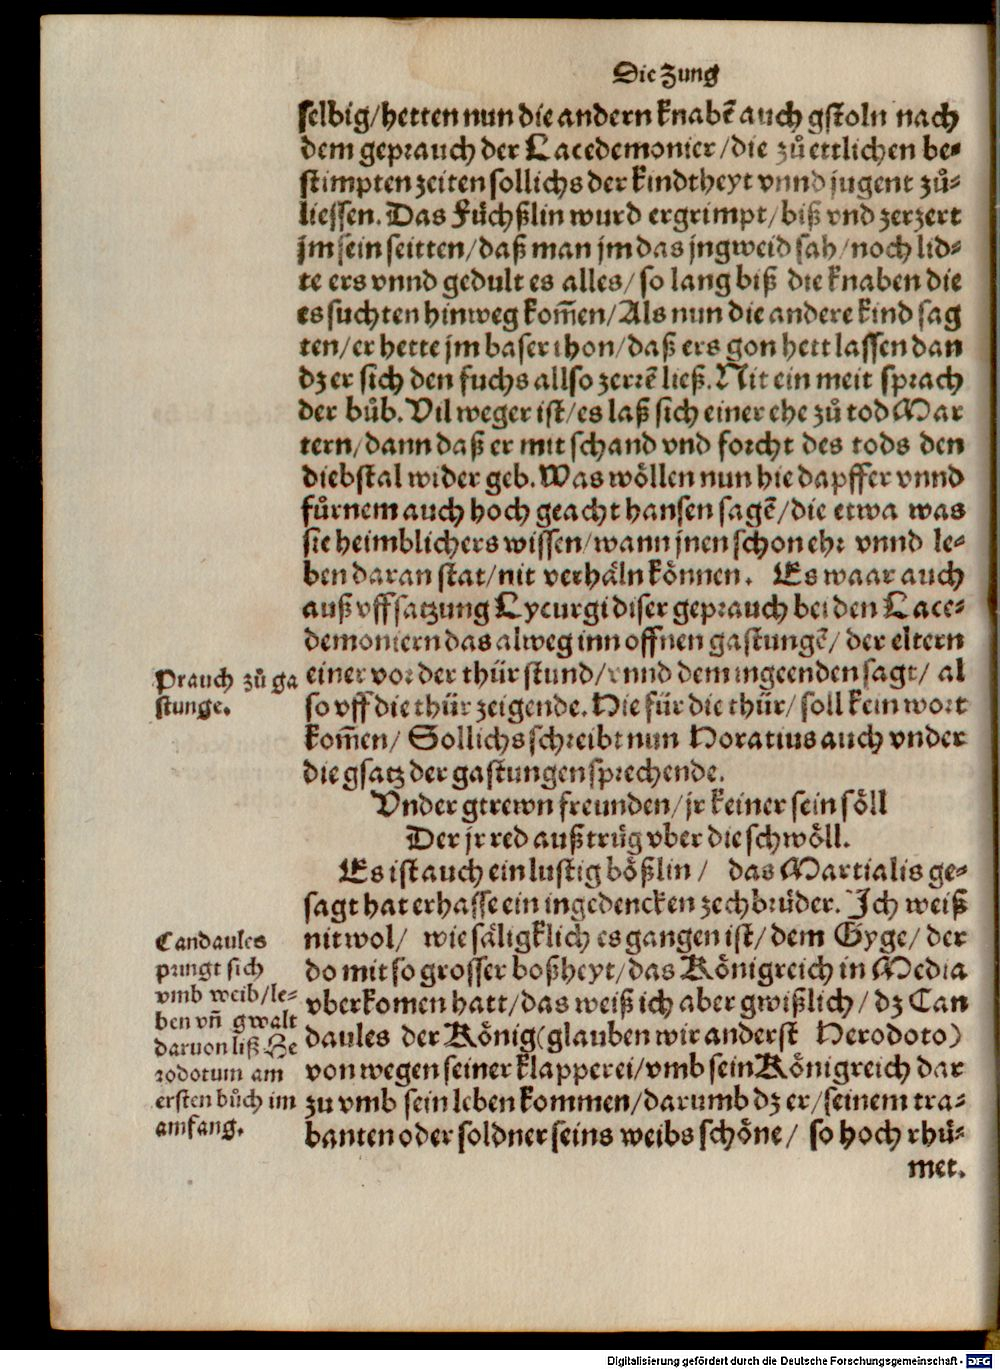 Die Zung
selbig/hetten nun die andern knabẽ auch gstoln nach
dem geprauch der Lacedemonier/die zů ettlichen be⸗
stimpten zeiten sollichs der kindtheyt vnnd jugent zů⸗
liessen. Das Füchßlin wurd ergrimpt/biß vnd zerzert
jm sein seitten/daß man jm das jngweid sah/noch lid⸗
te ers vnnd gedult es alles/so lang biß die knaben die
es suchten hinweg kom̃en/Als nun die andere kind sag
ten/er hette jm baser thon/daß ers gon hett lassen dan
dz er sich den fuchs allso zerrẽ ließ. Nit ein meit sprach
der bůb. Vil weger ist/es laß sich einer ehe zů tod Mar
tern/dann daß er mit schand vnd forcht des tods den
diebstal wider geb. Was wöllen nun hie dapffer vnnd
fürnem auch hoch geacht hansen sagẽ/die etwa was
sie heimblichers wissen/wann jnen schon ehr vnnd le⸗
ben daran stat/nit verhäln können. Es waar auch
auß vffsatzung Lycurgi diser geprauch bei den Lace⸗
demoniern das alweg inn offnen gastungẽ/ der eltern
einer vor der thür stund/vnnd dem ingeenden sagt/ al
so vff die thür zeigende. Hie für die thür/ soll kein wort
kom̃en/ Sollichs schreibt nun Horatius auch vnder
die gsatz der gastungen sprechende.
Vnder gtrewn freunden/jr keiner sein söll
Der jr red außtrüg vber die schwöll.
Es ist auch ein lustig bößlin/ das Martialis ge⸗
sagt hat er hasse ein ingedencken zechbrüder. Ich weiß
nit wol/ wie säligklich es gangen ist/dem Gyge/ der
do mit so grosser boßheyt/das Königreich in Media
vberkomen hatt/das weiß ich aber gwißlich/ dz Can
daules der König(glauben wir anderst Herodoto)
von wegen seiner klapperei/vmb sein Königreich dar
zu vmb sein leben kommen/darumb dz er/seinem tra⸗
banten oder soldner seins weibs schöne/ so hoch rhü⸗
met.
Prauch zů ga
stunge.
Candaules
pringt sich
vmb weib/le⸗
ben vñ gwalt
daruon liß He
rodotum am
ersten bůch im
amfang.
Digitalisierung gefördert durch die Deutsche Forschungsgemeinschaft - DFG